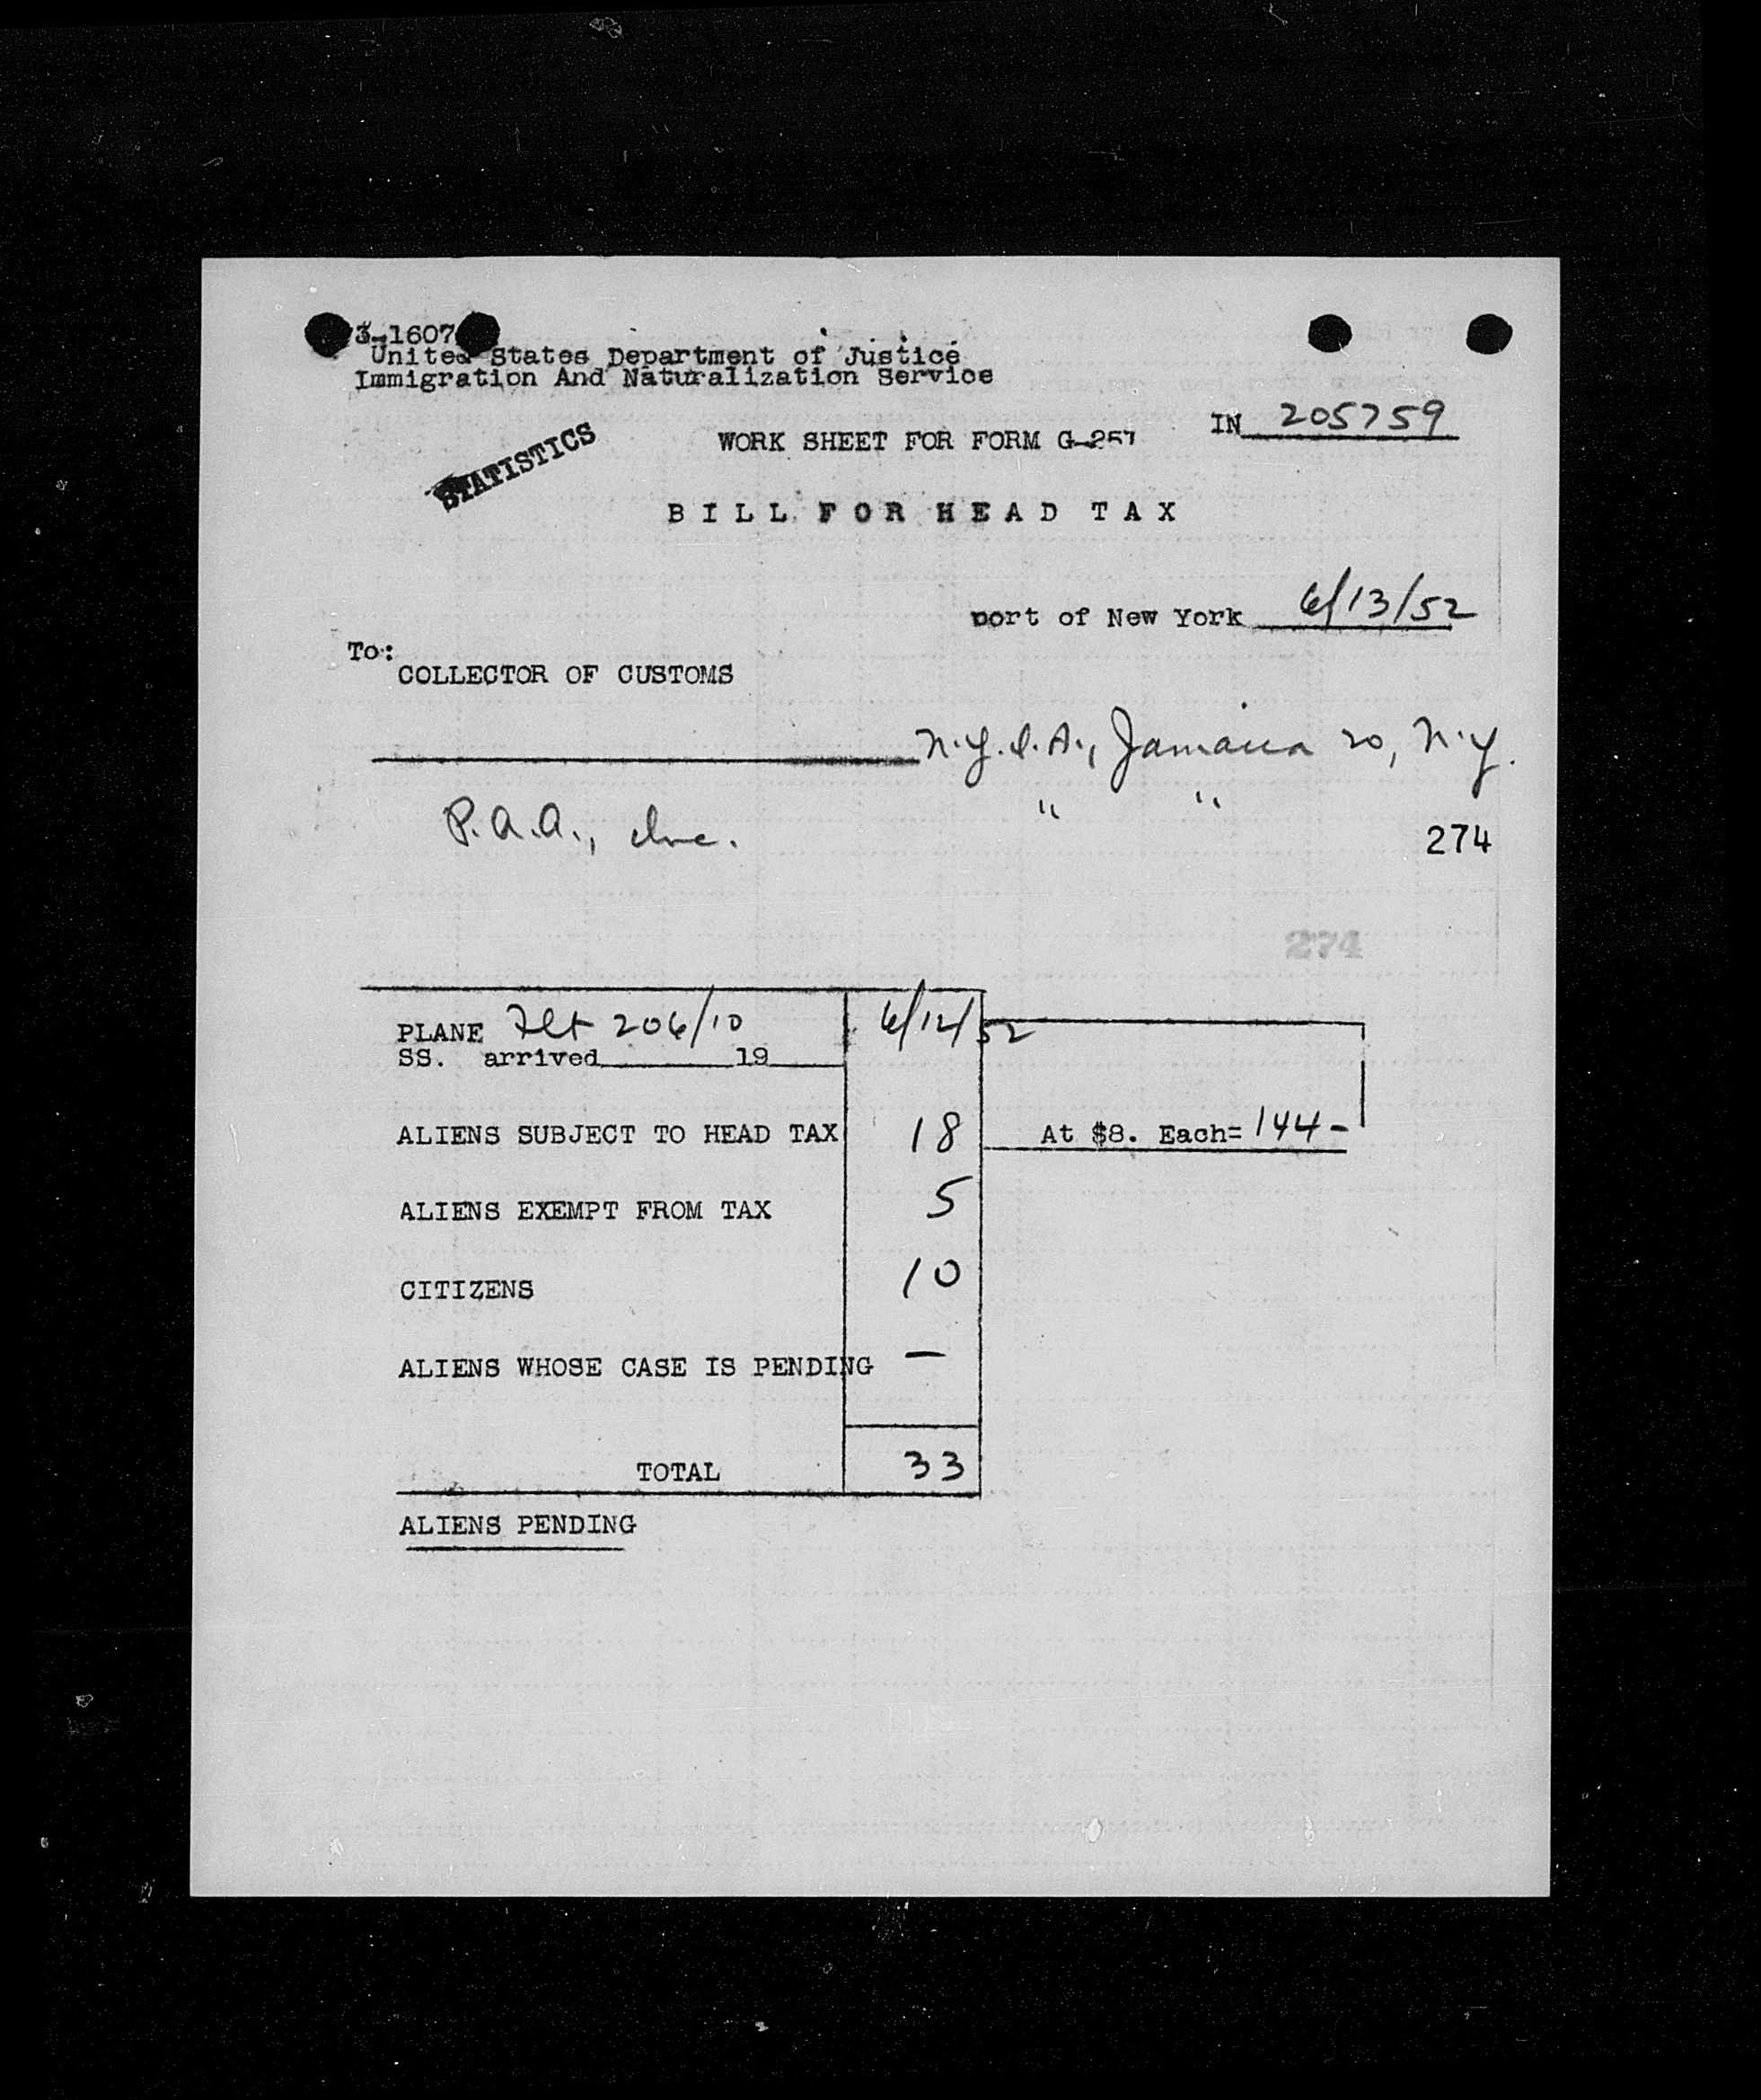 3-1607
United States Department of Justice
Immigration And Naturalization Service
IN 205759
STATISTICS
WORK SHEET FOR FORM G-257
BILL FOR HEAD TAX
port of New York 6/13/52
To:
COLLECTOR OF CUSTOMS
N.Y.I.A., Jamaica 20, N.Y.
P.A.A., Inc. " "
274
274
PLANE Flt 206/10 6/12/52
SS. arrived 19
ALIENS SUBJECT TO HEAD TAX 18 At $8. Each= 144-
ALIENS EXEMPT FROM TAX 5
CITIZENS 10
ALIENS WHOSE CASE IS PENDING —
TOTAL 33
ALIENS PENDING